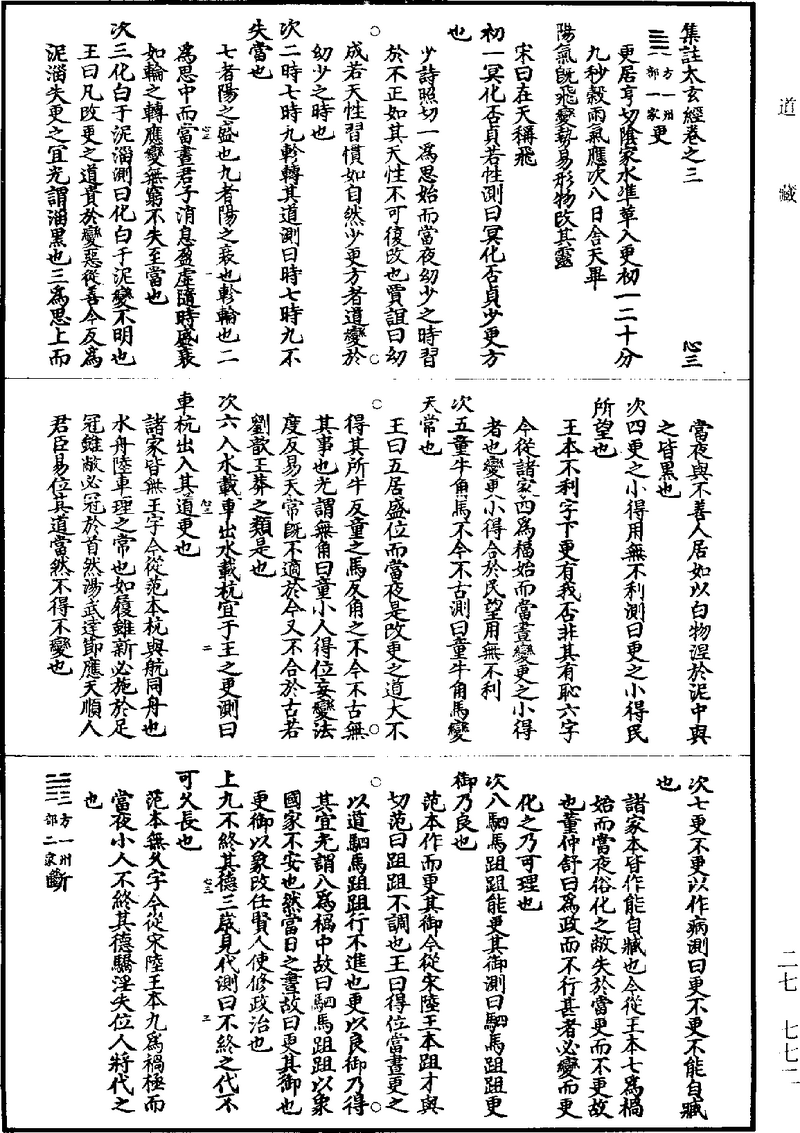 道藏
集註太玄經卷之三 心三
一方一州一部一家更
更居亨切陰家水準革入更初一二十分
九秒穀雨氣應次八日舍天畢
陽氣旣飛變勢易形物改其靈
宋曰在天稱飛
初一冥化否貞若性測曰冥化否貞少更方
也
少詩照切一爲思始而當夜幼少之時習
於不正如其天性不可復改也賈誼曰幼
成若天性習慣如自然少更方者道變於
幼少之時也
次二時七時九軫轉其道測曰時七時九不
失當也
七者陽之盛也九者陽之衰也軫輪也二
爲思中而當晝君子消息盈虛隨時盛衰
如輪之轉應變無窮不失至當也
次三化白于泥淄測曰化白于泥變不明也
王曰凡改更之道貴於變惡從善今反爲
泥淄失更之宜光謂淄黑也三爲思上而
當夜與不善人居如以白物涅於泥中與
之皆黑也
次四更之小得用無不利測曰更之小得民
所望也
王本不利字下更有我否非其有恥六字
今從諸家四爲福始而當晝變更之小得
者也變更小得合於民望用無不利
次五童牛角馬不今不古測曰童牛角馬變
天常也
王曰五居盛位而當夜是改更之道大不
得其所牛反童之馬反角之不今不古無
其事也光謂無角曰童小人得位妄變法
度反易天常旣不適於今又不合於古若
劉歆王莽之類是也
次六入水載車出水載杭宜于王之更測曰
車杭出入其道更也
諸家皆無王字今從范本杭與航同舟也
水舟陸車理之常也如履雖新必施於足
冠雖敝必冠於首然湯武達節應天順人
君臣易位其道當然不得不變也
次七更不更以作病測曰更不更不能自臧
也
諸家本皆作能自臧也今從王本七爲禍
始而當夜俗化之敝失於當更而不更故
也董仲舒曰爲政而不行甚者必變而更
化之乃可理也
次八駟馬跙跙能更其御測曰駟馬跙跙更
御乃良也
范本作而更其御今從宋陸王本跙才與
切范曰跙跙不調也王曰得位當晝更之
以道駟馬跙跙行不進也更以良御乃得
其宜光謂八爲禍中故曰駟馬跙跙以象
國家不安也然當日之晝故曰更其御也
更御以象改任賢人使修政治也
上九不終其德三歲見代測曰不終之代不
可久長也
范本無久字今從宋陸王本九爲禍極而
當夜小人不終其德驕淫失位人將代之
也
三方一州二部二家斷
二七
七七二